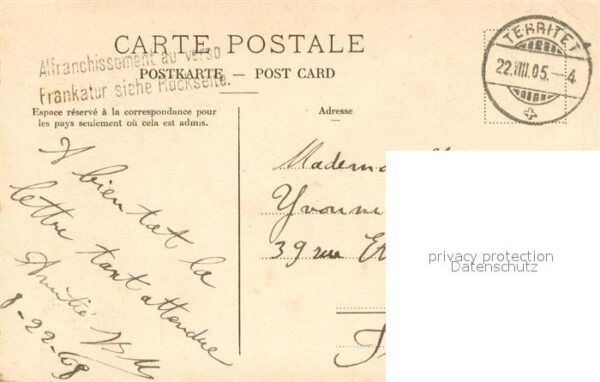 CARTE POSTALE
Affranchissement au verso
POSTKARTE — POST CARD
Frankatur siehe Rückseite.
TERRITET
22.VIII.05.-4
Espace réservé à la correspondance pour
les pays seulement où cela est admis.
Adresse
A bientat la
lettre tant attendue
Amitié
Mademo
Yvonne
39 rue Et
privacy protection
Datenschutz